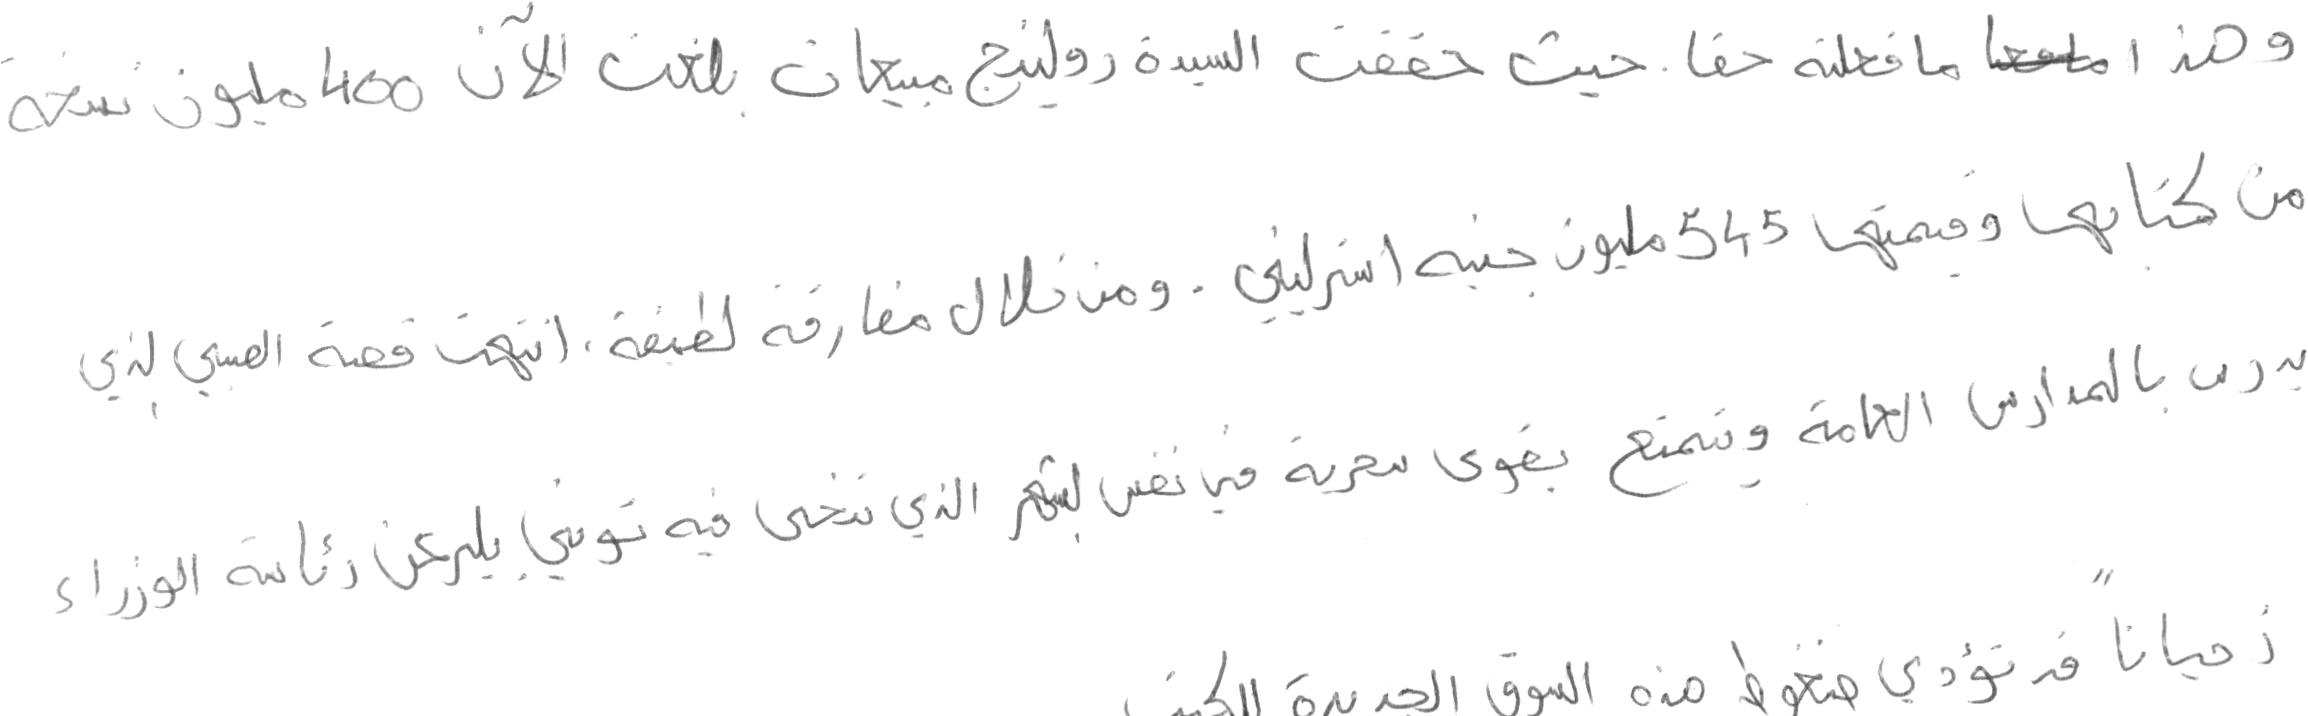 وهذا ما فعلته حقا. حيث حققت السيدة رولينج مبيعات بلغت الآن 400 مليون نسخة
من كتابها وقيمتها 545 مليون جنيه استرليني. ومن خلال مفارقة لطيفة، انتهت قصة الصبي الذي
يدرس بالمدارس العامة ويتمتع بقوى سحرية في نفس الشهر الذي تنحى فيه توني بلير عن رئاسة الوزراء
أحياناً قد تؤدي ضغوط هذه السوق الجديدة للكتب